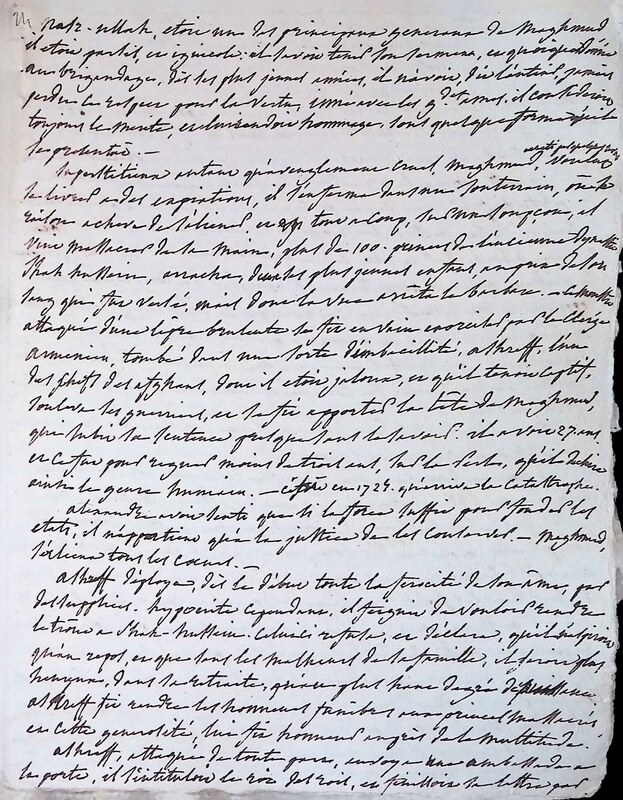 24
nasr-ullah, etoit un des principaux generaux de Maghmud
il etoit parsis, et ignicole. il avoit tenu son serment, et quoique donné
au brigandage, dès les plus jeunes années, il n'avoit, dit l'auteur, jamais
perdu le respect pour la vertu, inné avec les gdes ames, il consideroit
toujours le merite, et lui rendoit hommage, sous quelque forme qu'il
se presentat. —
superstitieux autant qu'aveuglement cruel, Maghmud, voulut
se livrer a des expiations, il s'enferma dans un souterrain, où sa
raison acheva de s'aliener, et tout a coup, sur un soupçon, il
vint massacrer de sa main, plus de 100 princes de l'ancienne dynastie
Shah hussein, arracha, deux des plus jeunes enfans, au prix de son
sang qui fut versé, mais dont la vue arrêta le barbare. — le monstre
attaqué d'une lèpre brulante se fit en vain exorciser par le Clergé
armenien, tombé dans une sorte d'imbecillité, ashreff, l'un
des chefs des afghans, dont il etoit jaloux, et qu'il tenoit captif,
souleva les guerriers, et se fit apporter la tête de Maghmud,
qui subit sa sentence presque sans le savoir. il avoit 27 ans,
et ce fut pour regner moins de trois ans, sur la Perse, qu'il dechira
ainsi le genre humain. — en 172 qu'arriva la Catastrophe.
alexandre avoit senti que si la force suffit pour fonder les
etats, il n'appartient qu'a la justice de les conserver. — Maghmud,
s'aliena tous les coeurs. —
ashreff deploya, dès le debut toute la ferocité de son âme, par
des supplices. hypocrite cependant, il feignit de vouloir rendre
le trône a Shah-hussein. Celui-ci refusa, et declara, qu'il n'aspiroit
qu'au repos, et que sans les malheurs de sa famille, il seroit plus
heureux, dans la retraite, qu'au plus haut degré de puissance
ashreff fit rendre les honneurs funèbres aux princes massacrés
et cette generosité, lui fit honneur auprès de la multitude.
ashreff, attaqué de toute part, envoya une ambassade a
la porte, il s'intituloit le roi des rois, et finissoit sa lettre par